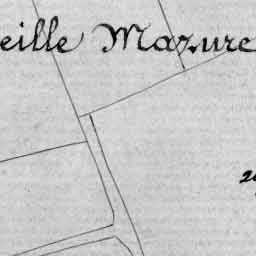 eille Mazure